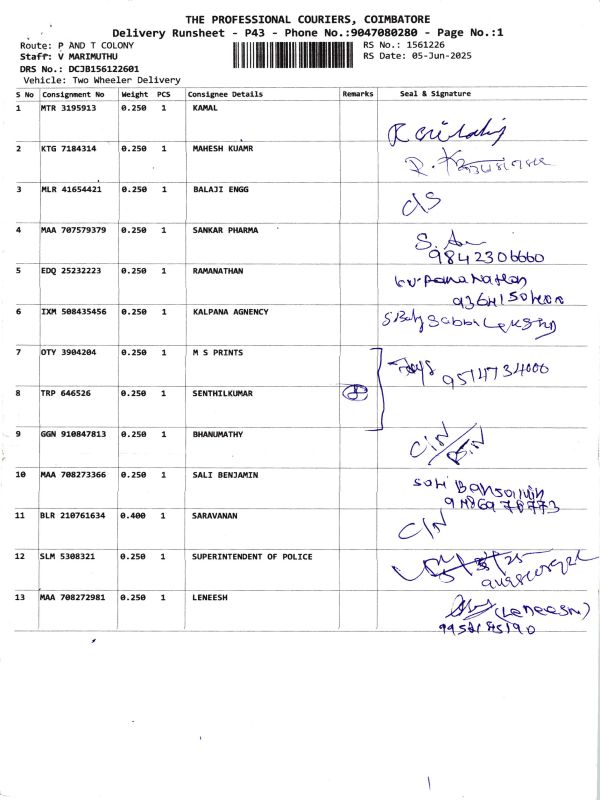 THE PROFESSIONAL COURIERS, COIMBATORE
Delivery Runsheet - P43 - Phone No.:9047080280 - Page No.:1
Route: P AND T COLONY
RS No.: 1561226
Staff: V MARIMUTHU
RS Date: 05-Jun-2025
DRS No.: DCJB156122601
Vehicle: Two Wheeler Delivery
S No Consignment No Weight PCS Consignee Details Remarks Seal & Signature
1 MTR 3195913 0.250 1 KAMAL
2 KTG 7184314 0.250 1 MAHESH KUAMR
3 MLR 41654421 0.250 1 BALAJI ENGG
4 MAA 707579379 0.250 1 SANKAR PHARMA
9842306660
5 EDQ 25232223 0.250 1 RAMANATHAN
6 IXM 508435456 0.250 1 KALPANA AGNENCY
7 OTY 3904204 0.250 1 M S PRINTS
9514734000
8 TRP 646526 0.250 1 SENTHILKUMAR
9 GGN 910847813 0.250 1 BHANUMATHY
C/N
10 MAA 708273366 0.250 1 SALI BENJAMIN
11 BLR 210761634 0.400 1 SARAVANAN
C/N
12 SLM 5308321 0.250 1 SUPERINTENDENT OF POLICE
13 MAA 708272981 0.250 1 LENEESH
(Leneesh)